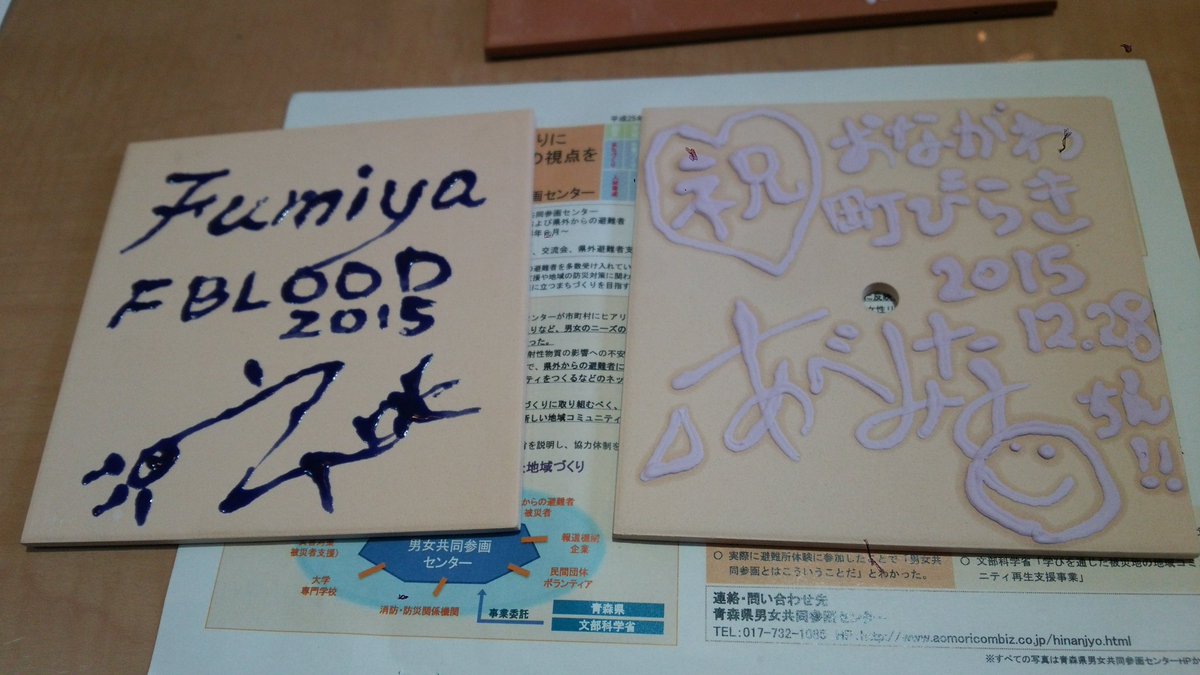 Fumiya
F BLOOD
2015
祝
おながわ
町びらき
2015
12.28
ちん!!
平成25年
りに
の視点を
画センター
共同参画センター
および県外からの避難者
、交流会、県外避難者支
の避難者を多数受け入れてい
支援や地域の防災対策に関わ
に立つまちづくりを目指す
ンターが市町村にヒアリ
りなど、男女のニーズの
った。
射性物質の影響への不安
で、県外からの避難者に
ティをつくるなどのネッ
づくりに取り組むべく、
新しい地域コミュニティ
省を説明し、協力体制を
た地域づくり
からの避難者
被災者
被災者支援)
男女共同参画
センター
報道機関
企業
大学
専門学校
民間団体
ボランティア
消防・防災関係機関
事業委託
青森県
文部科学省
○ 実際に避難所体験に参加したことで「男女共
同参画とはこういうことだ」とわかった。
○ 文部科学省「学びを通した被災地の地域コミュ
ニティ再生支援事業」
連絡・問い合わせ先
青森県男女共同参画センター
TEL:017-732-1085 HP:http://www.aomoricombiz.co.jp/hinanjyo.html
※すべての写真は青森県男女共同参画センターHPか